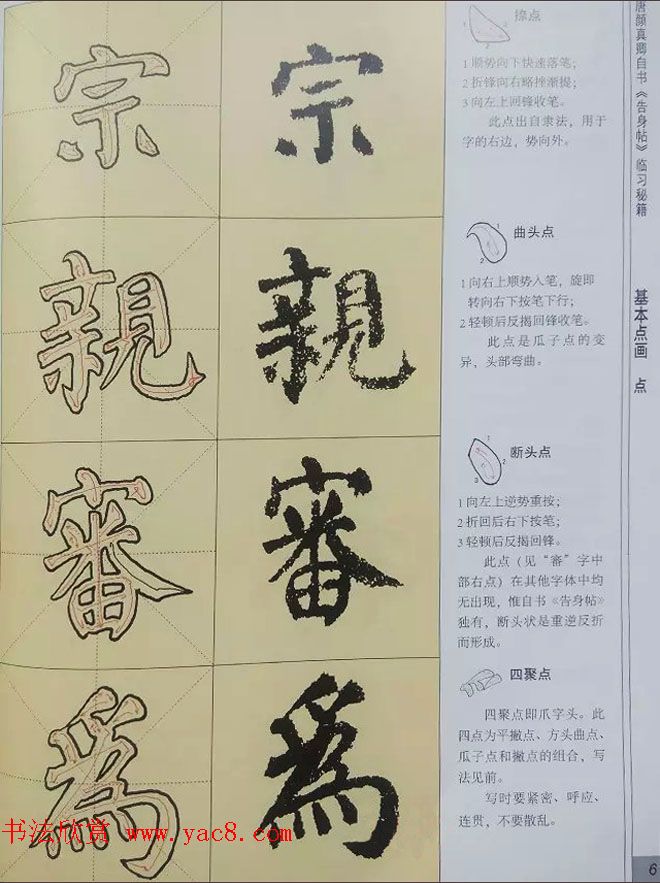 唐颜真卿自书《告身帖》临习秘籍
基本点画 点
宗 宗
捺点
1 顺势向下快速落笔;
2 折锋向右略挫渐提;
3 向左上回锋收笔。
此点出自隶法,用于
字的右边,势向外。
親 親
曲头点
1 向右上顺势入笔,旋即
转向右下按笔下行;
2 轻顿后反揭回锋收笔。
此点是瓜子点的变
异,头部弯曲。
審 審
断头点
1 向左上逆势重按;
2 折回后右下按笔;
3 轻顿后反揭回锋。
此点(见“審”字中
部右点)在其他字体中均
无出现,惟自书《告身帖》
独有,断头状是重逆反折
而形成。
為 為
四聚点
四聚点即爪字头。此
四点为平撇点、方头曲点、
瓜子点和撇点的组合,写
法见前。
写时要紧密、呼应、
连贯,不要散乱。
书法欣赏 www.yac8.com
6